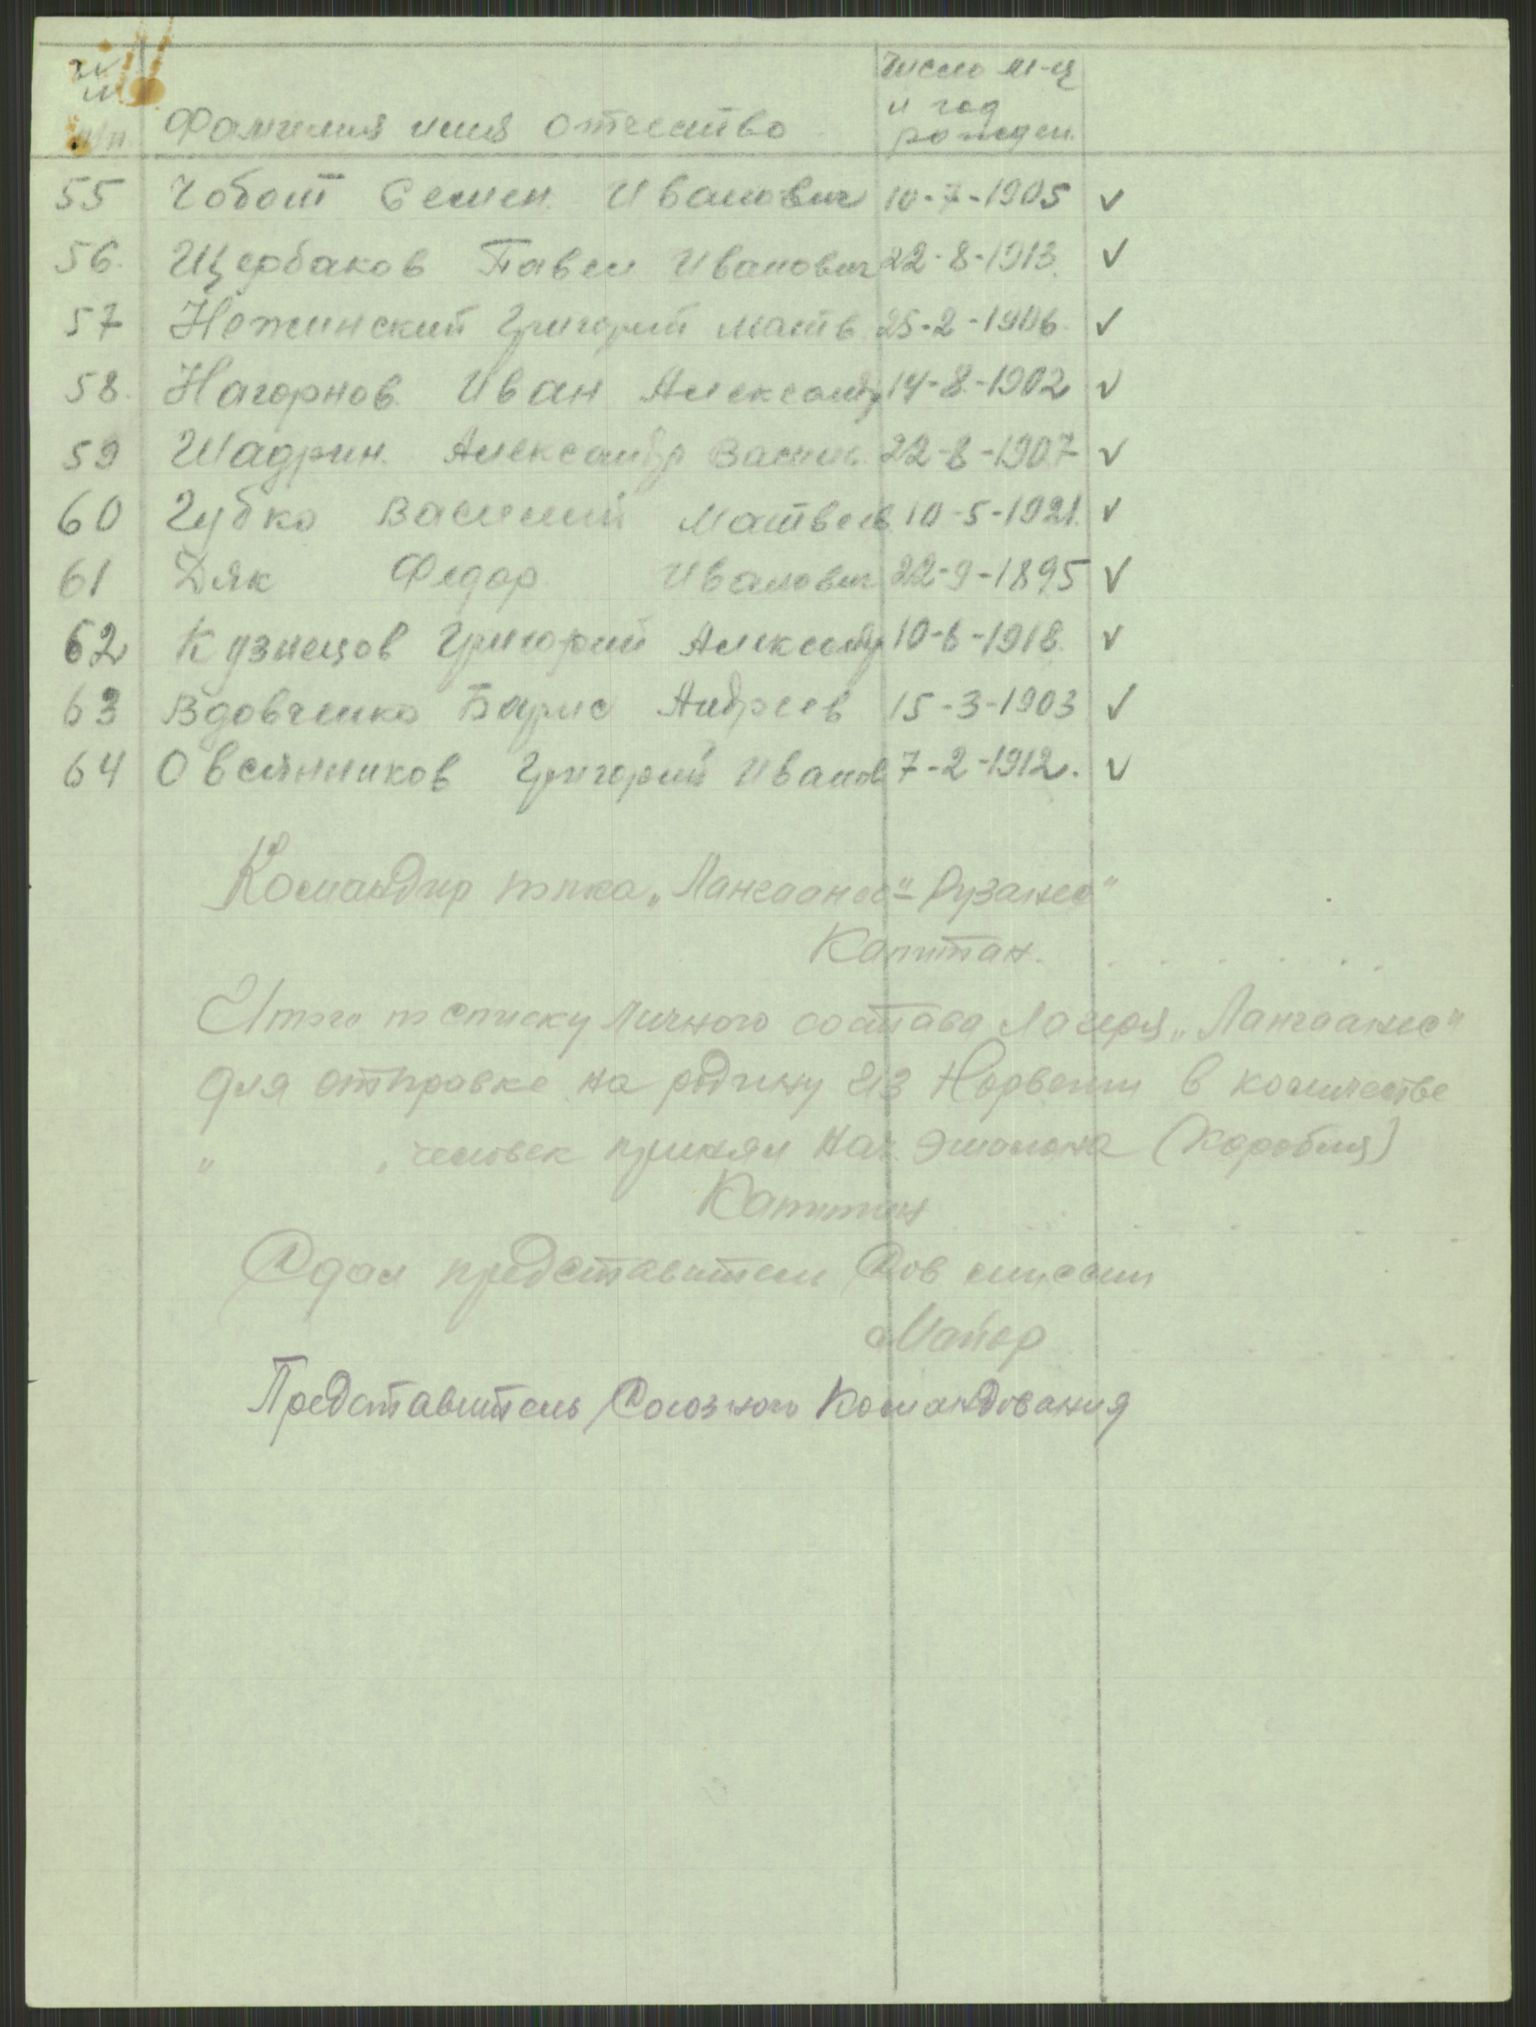 №№ п/п Фамилия имя отчество Число м-ц и год рожден.
55 Чобот Семен Иванович 10-7-1905 ✓
56. Щербаков Павел Иванович 22-8-1913. ✓
57 Нежинский Григорий Матв 25-2-1906. ✓
58. Нагорнов Иван Александр 14-8-1902 ✓
59 Шадрин. Александр Васил. 22-8-1907 ✓
60 Губко Василий Матвеев 10-5-1921. ✓
61 Дяк Федор Иванович 22-9-1895 ✓
62 Кузнецов Григорий Александр 10-6-1918. ✓
63 Вдовченко Борис Андреев 15-3-1903 ✓
64 Овсянников Григорий Иванов 7-2-1912. ✓
Командир „Лангаанес"-
Капитан.
Итого по списку личного состава лагеря „Лангаанес"
для отправке на родину из Норвегии в количестве
" " человек принял нач. эшалона (Корабля)
Капитан
Сдал представители Сов миссии
Майор
Представитель Союзного Командования